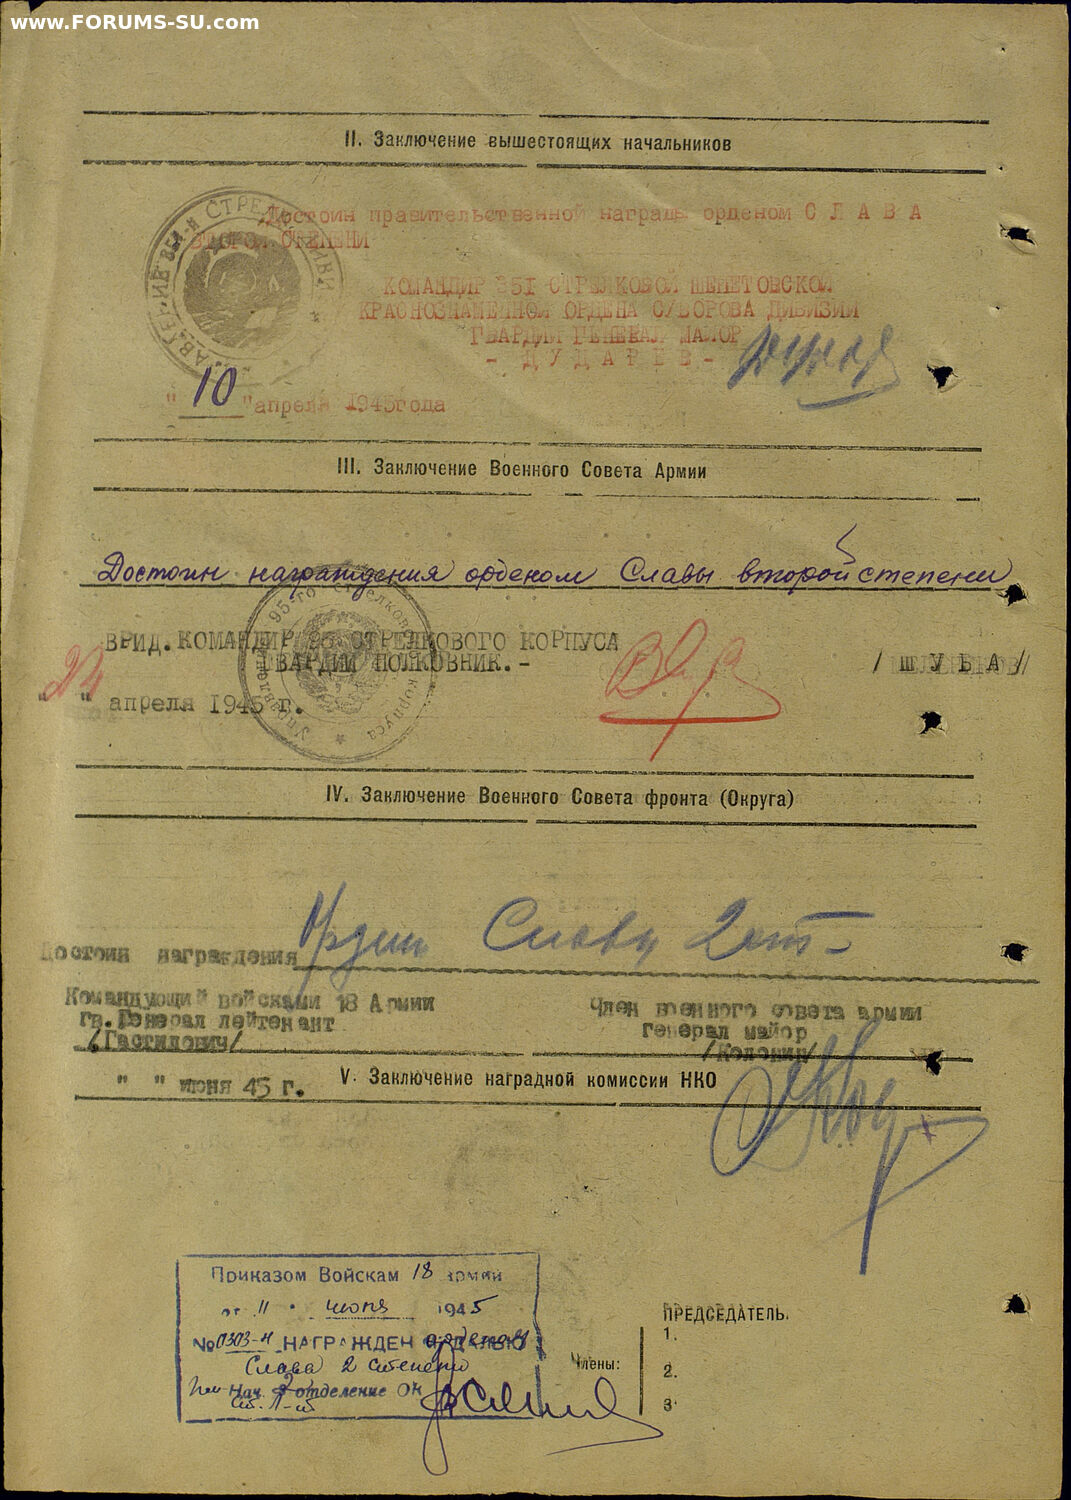 www.FORUMS-SU.com
II. Заключение вышестоящих начальников
Достоин правительственной награды орденом С Л А В А
ВТОРОЙ СТЕПЕНИ
КОМАНДИР 351 СТРЕЛКОВОЙ ШЕПЕТОВСКОЙ
КРАСНОЗНАМЕННОЙ ОРДЕНА СУВОРОВА ДИВИЗИИ
ГВАРДИИ ГЕНЕРАЛ МАЙОР
- Д У Д А Р Е В -
"10" апреля 1945года
III. Заключение Военного Совета Армии
Достоин награждения орденом Славы второй степени
ВРИД. КОМАНДИР 95 СТРЕЛКОВОГО КОРПУСА
ГВАРДИИ ПОЛКОВНИК.-
/ Ш У Б А /
" " апреля 1945 г.
Управление 95-го стрелкового корпуса
IV. Заключение Военного Совета фронта (Округа)
Достоин награждения Орден Славы 2 ст-
Командующий войсками 18 Армии
гв. Генерал лейтенант
/Гастилович/
Член военного совета армии
генерал майор
/Колонин/
" " июня 45 г.
V. Заключение наградной комиссии НКО
Приказом Войскам 18 армии
от 11 " июня 1945
№ 0303-н НАГРАЖДЕН орденом
Слава 2 степени
Нач. 2 отделение ОК
ПРЕДСЕДАТЕЛЬ.
Члены:
1.
2.
3